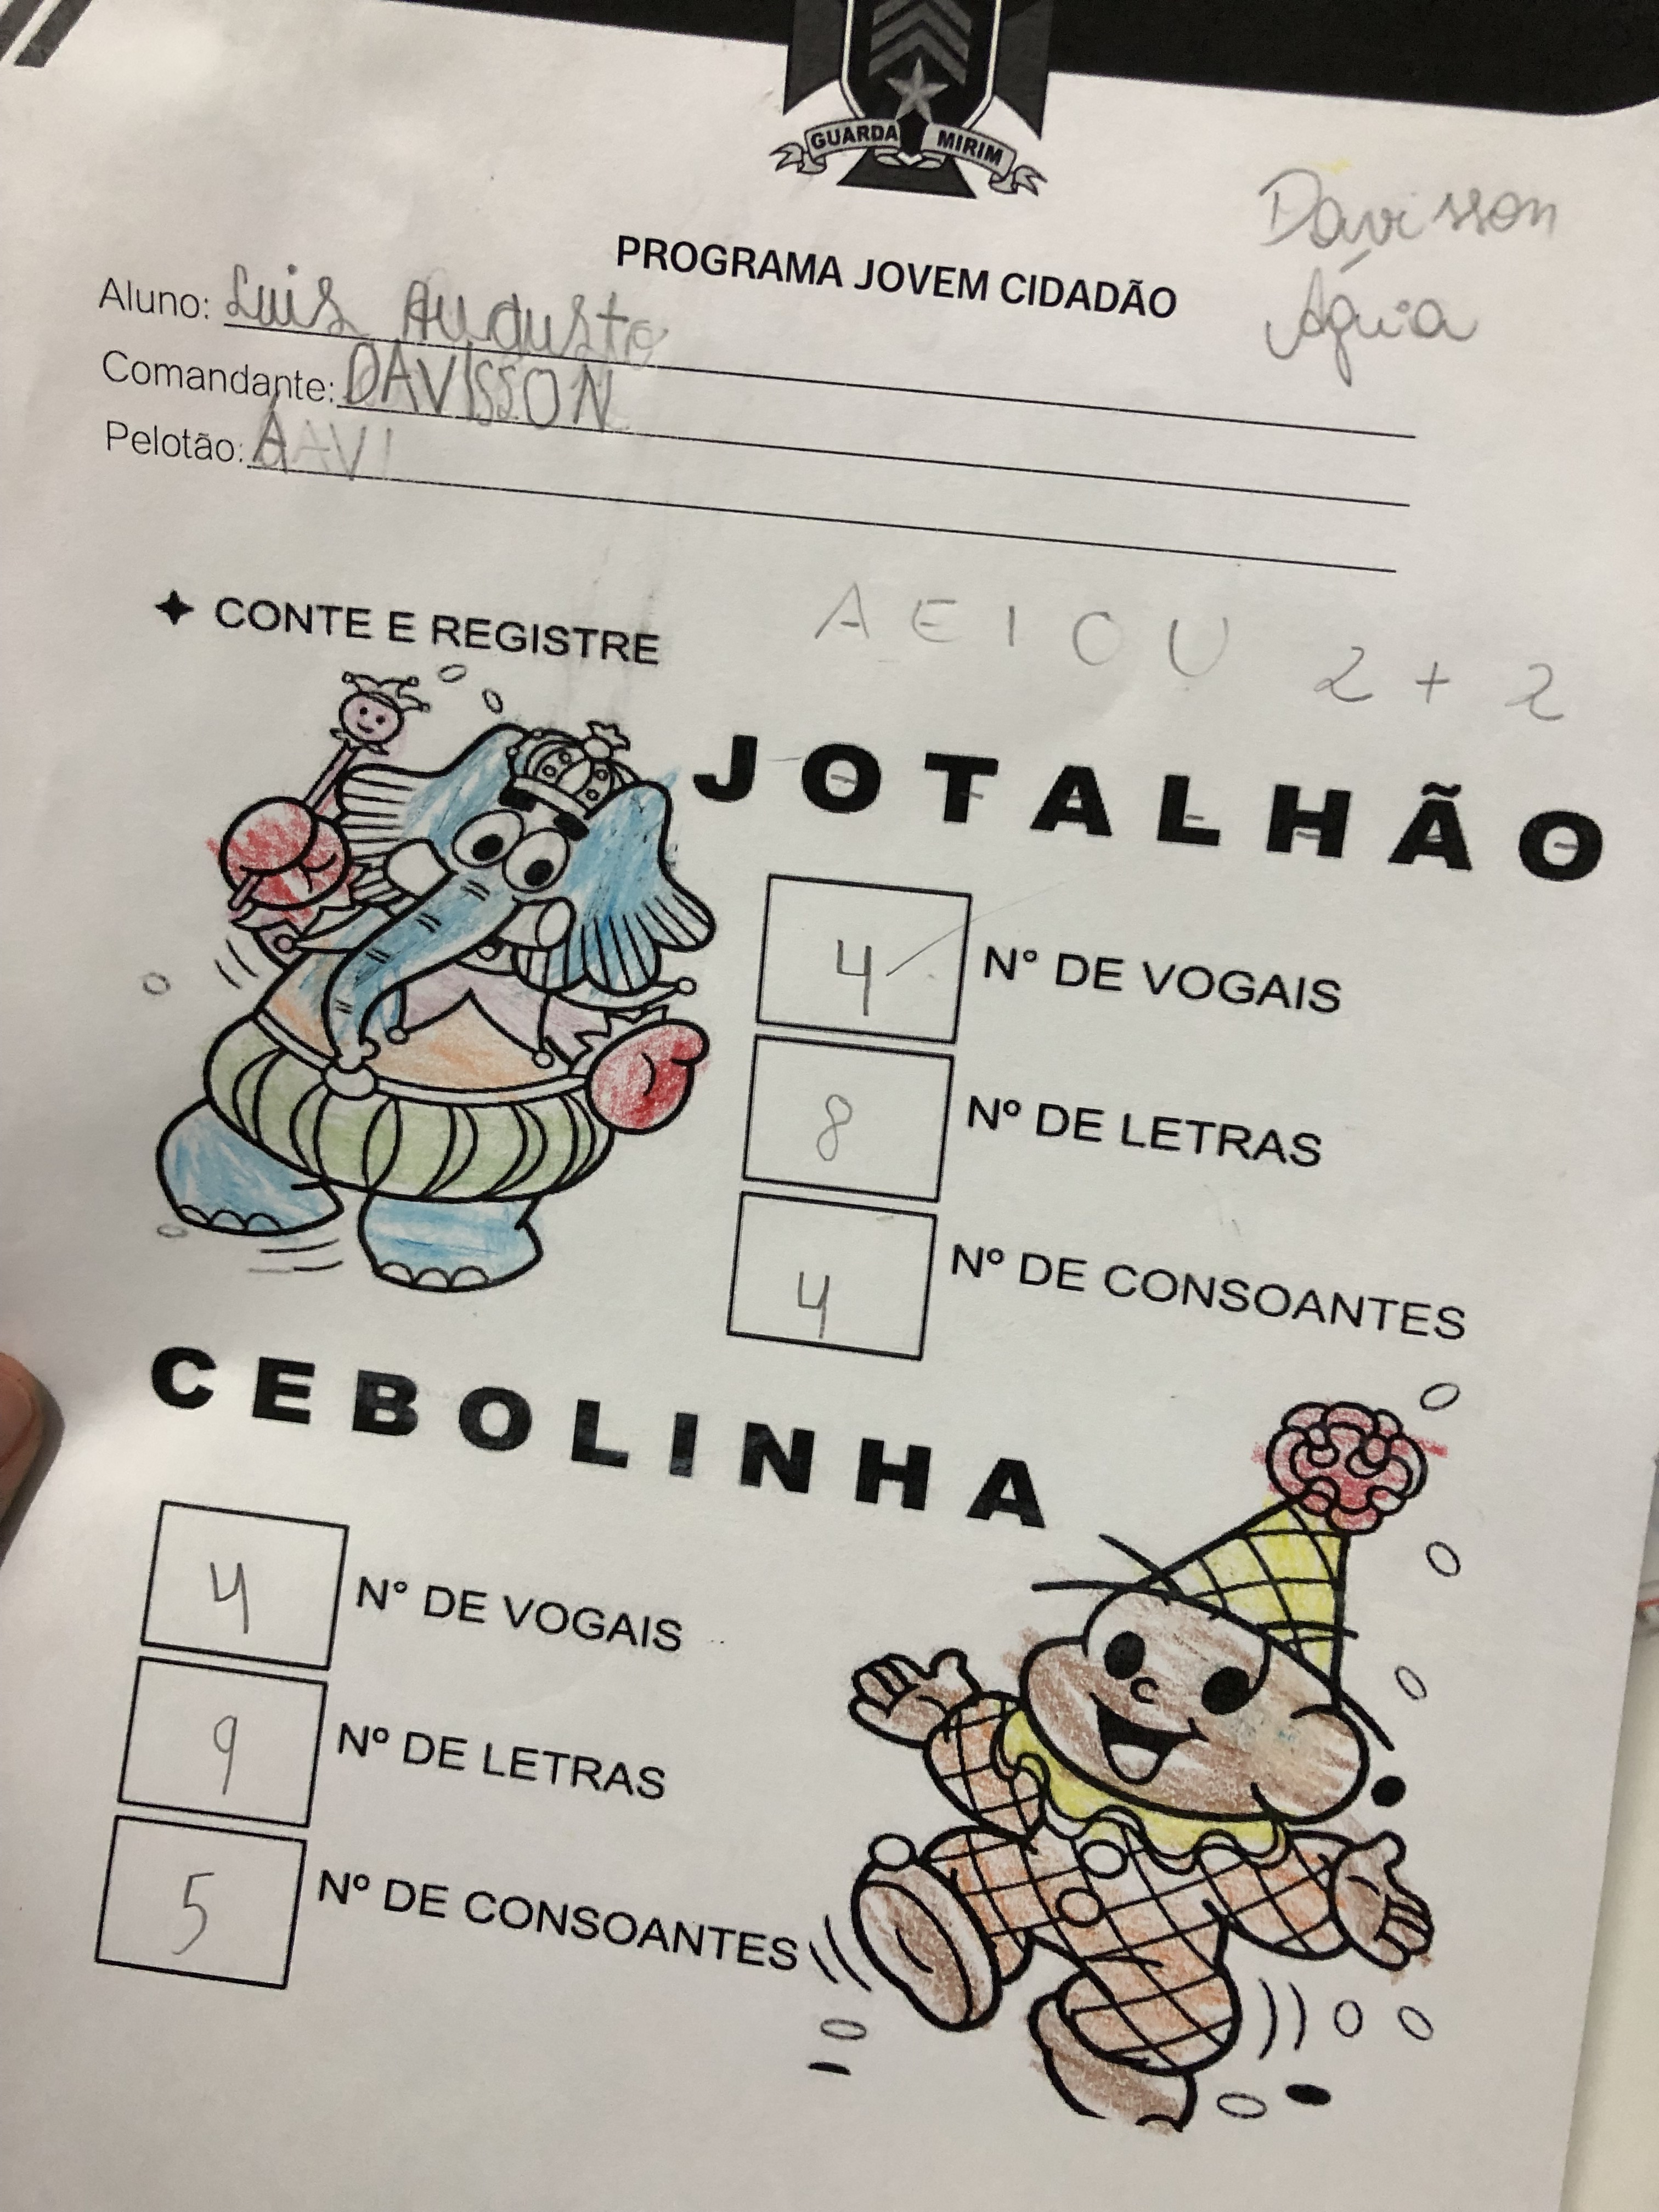 GUARDA MIRIM
Davisson
Águia
PROGRAMA JOVEM CIDADÃO
Aluno: Luis Augusto
Comandante: DAVISSON
Pelotão:
✦ CONTE E REGISTRE
A E I O U 2 + 2
JOTALHÃO
4 N° DE VOGAIS
8 Nº DE LETRAS
4 Nº DE CONSOANTES
CEBOLINHA
4 N° DE VOGAIS
9 Nº DE LETRAS
5 Nº DE CONSOANTES